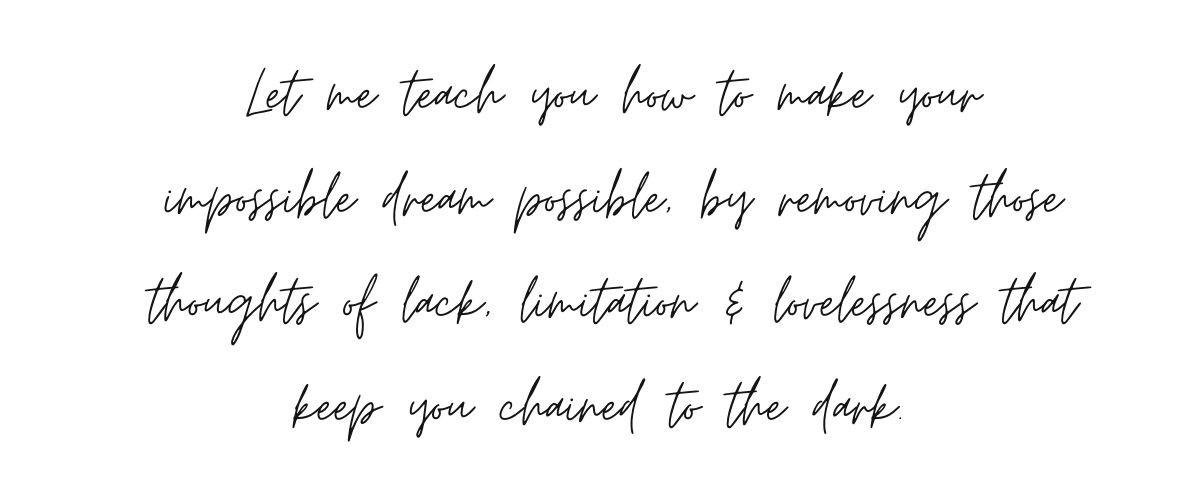 Let me teach you how to make your
impossible dream possible, by removing those
thoughts of lack, limitation & lovelessness that
keep you chained to the dark.